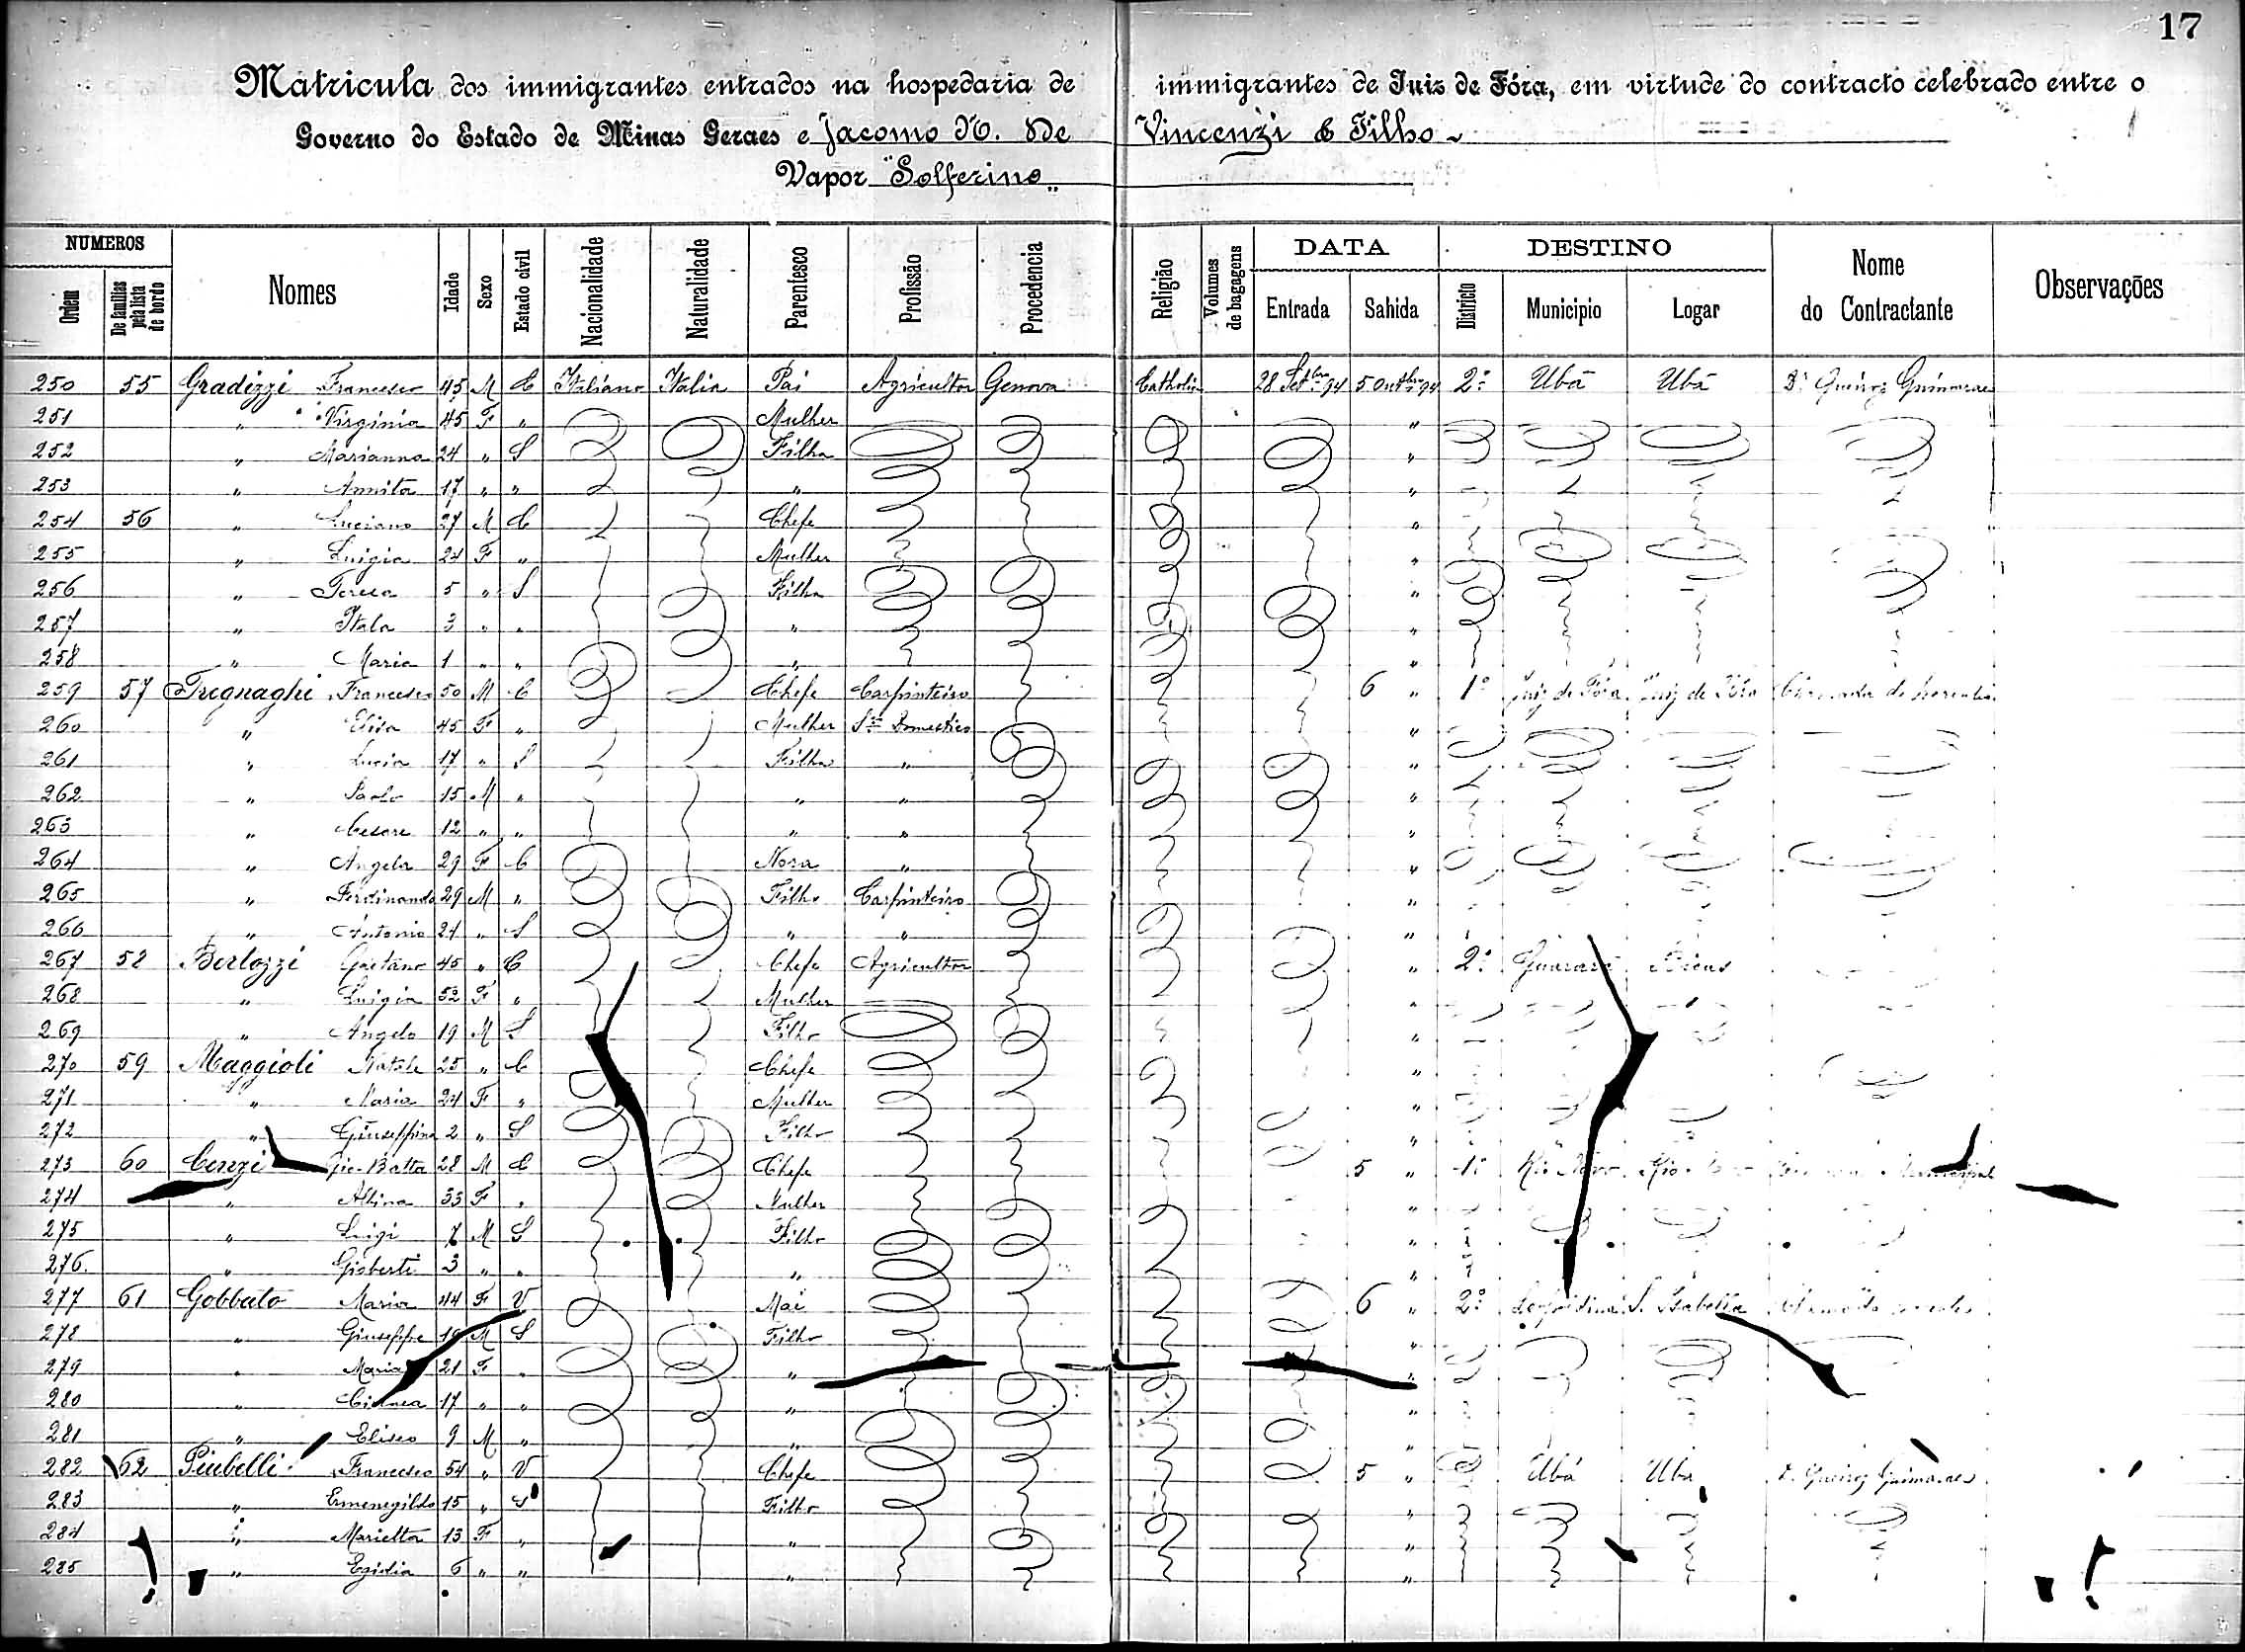 17
Matricula dos immigrantes entrados na hospedaria de immigrantes de Juiz de Fóra, em virtude do contracto celebrado entre o
Governo do Estado de Minas Geraes e Jacomo N. De Vincenzi & Filho
Vapor "Solferino"
NUMEROS DATA DESTINO
Ordem De familias pela lista de bordo Nomes Idade Sexo Estado civil Nacionalidade Naturalidade Parentesco Profissão Procedencia Religião Volumes de bagagens Entrada Sahida Districto Municipio Logar Nome do Contractante Observações
250 55 Gradizzi Francesco 45 M C Italiano Italia Pai Agricultor Genova Catholica 28 Setbro 94 5 Outbro 94 2º Ubá Ubá Dr Queiroz Guimarães
251 " Virginia 45 F " Mulher "
252 " Marianna 24 " S Filha "
253 " Annita 17 " " " "
254 56 " Luciano 27 M C Chefe "
255 " Luigia 24 F " Mulher "
256 " Teresa 5 " S Filha "
257 " Itala 3 " " " "
258 " Maria 1 " " " "
259 57 Tregnaghi Francesco 50 M C Chefe Carpinteiro 6 " 1º Juiz de Fóra Juiz de Fóra
260 " Elisa 45 F " Mulher Sço Domestico "
261 " Lucia 17 " S Filha " "
262 " Paolo 15 M " " " "
263 " Cesare 12 " " " " "
264 " Angela 29 F C Nora " "
265 " Ferdinando 29 M " Filho Carpinteiro "
266 " Antonio 21 " S " " "
267 58 Bertozzi Gaetano 45 " C Chefe Agricultor " 2º Guarará Bicas
268 " Luigia 52 F " Mulher "
269 " Angelo 19 M S Filho "
270 59 Maggioli Natale 25 " C Chefe "
271 " Maria 24 F " Mulher "
272 " Giuseppina 2 " S Filho "
273 60 Cenzi Gio-Batta 28 M C Chefe 5 " 1º Rio Novo Rio Novo
274 " Albina 33 F " Mulher "
275 " Luigi 7 M S Filho "
276 " Gioberti 3 " " " "
277 61 Gobbato Maria 44 F V Mai 6 " 2º Leopoldina S. Isabella
278 " Giuseppe M S Filho "
279 " Maria 21 F " " "
280 " 17 " " " "
281 " Eliseo 9 M " " "
282 62 Piubelli Francesco 54 " V Chefe 5 " Ubá Ubá Dr Queiroz Guimarães
283 " Ermenegildo 15 " S Filho "
284 " Marietta 13 F " " "
285 " Egidia 6 " " " "